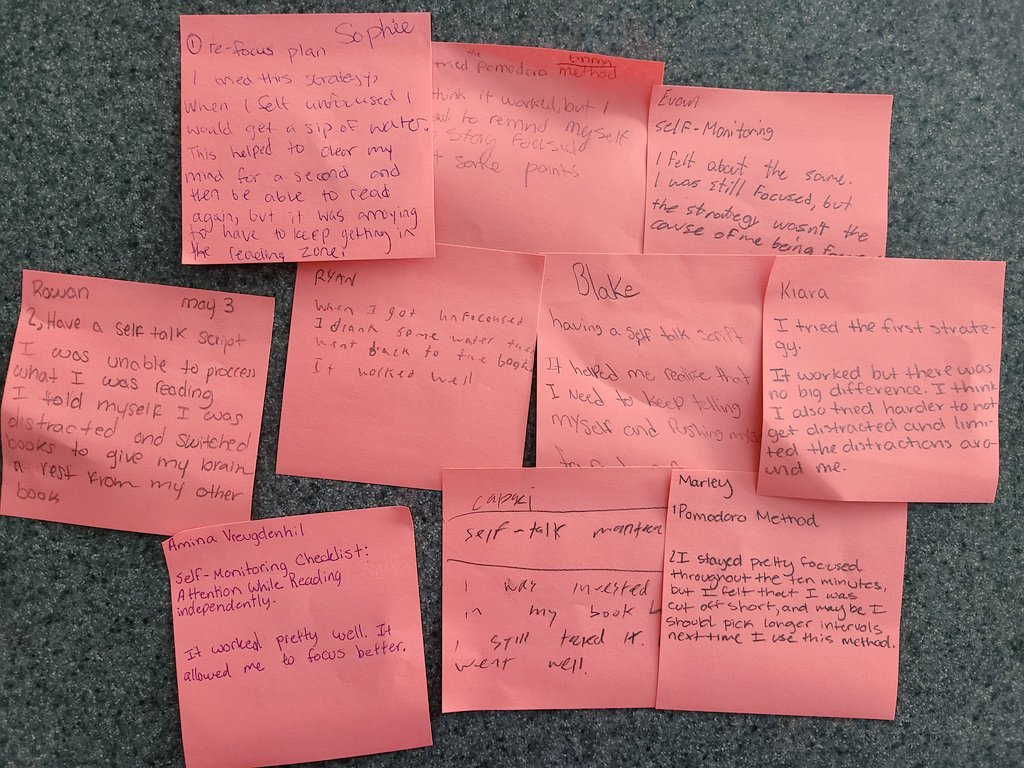 Sophie
① re-focus plan
I tried this strategy,
When I felt unfocused I
would get a sip of water.
This helped to clear my
mind for a second and
then be able to read
again, but it was annoying
to have to keep getting in
the reading zone.
the Emma
tried pomodoro method
think it worked, but I
to remind myself
stay focused
some points
Evan
self-Monitoring
I felt about the same.
I was still focused, but
the strategy wasn't the
cause of me being
Rowan may 3
2, Have a self talk script
I was unable to process
what I was reading
I told myself I was
distracted and switched
books to give my brain
a rest from my other
book
RYAN
When I got unfocused
I drank some water then
went back to the book
It worked well
Blake
having a self talk script
It helped me realize that
I need to keep telling
myself and pushing
Kiara
I tried the first strate-
gy.
It worked but there was
no big difference. I think
I also tried harder to not
get distracted and limi-
ted the distractions aro-
und me.
Amina Vreugdenhil
self-Monitoring Checklist:
Attention While Reading
independently.
It worked pretty well. It
allowed me to focus better.
self-talk
I was invested
in my book
I still It.
went well.
Marley
1 Pomodoro Method
2 I stayed pretty focused
throughout the ten minutes,
but I felt that I was
cut off short, and maybe I
should pick longer intervals
next time I use this method.